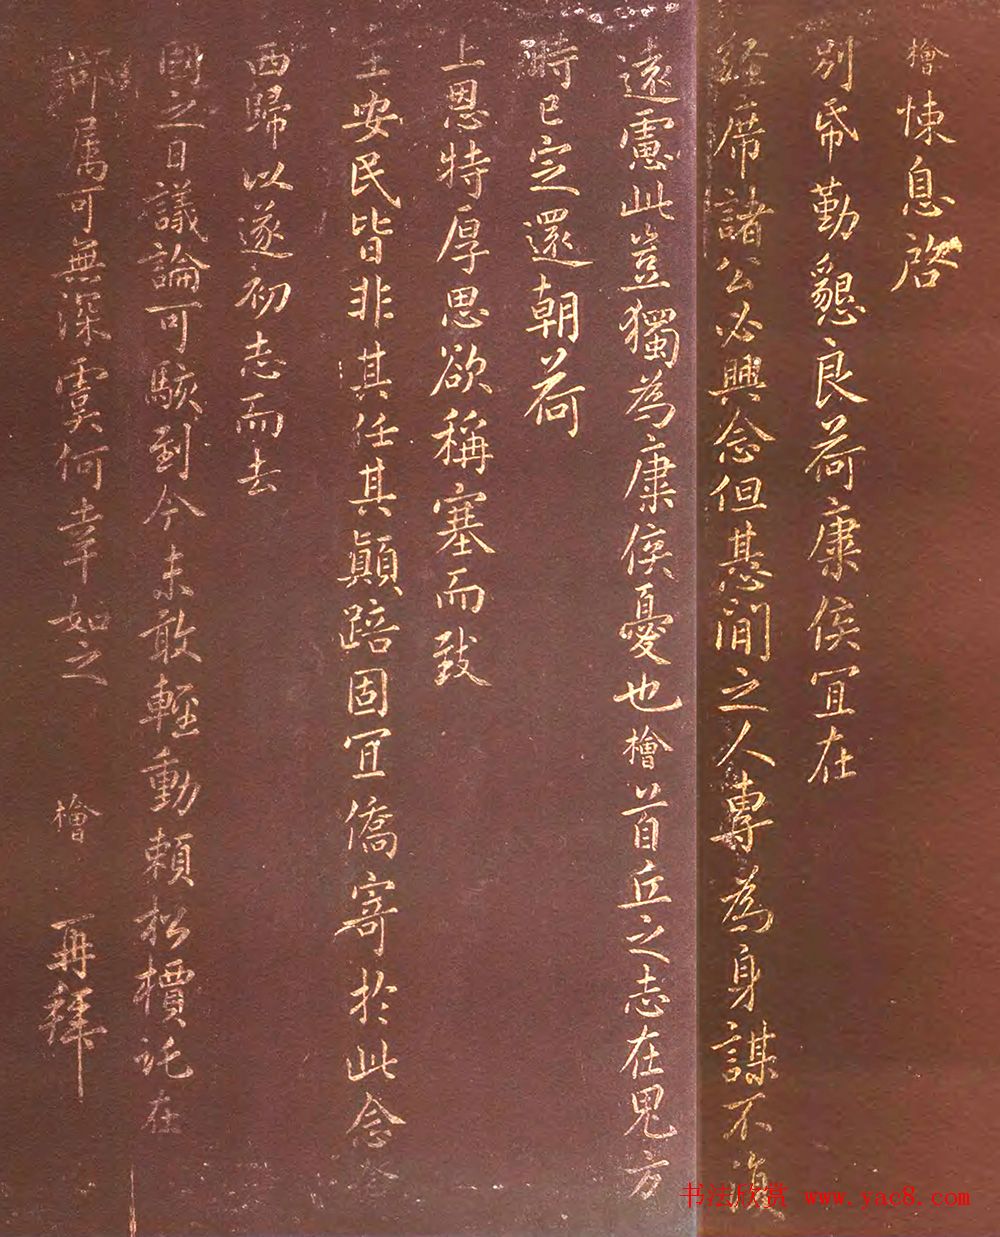 檜悚息啓
別帋勤懇良荷康侯宜在
經席諸公必興念但惎間之人專為身謀不復
遠慮此豈獨為康侯憂也檜首丘之志在皃方
時已定還朝荷
上恩特厚思欲稱塞而致
主安民皆非其任其顛踣固宜僑寄於此念
西歸以遂初志而去
國之日議論可駭到今未敢輕動賴松檟託在
鄰属可無深虞何幸如之 檜 再拜
书法欣赏 www.yac8.com